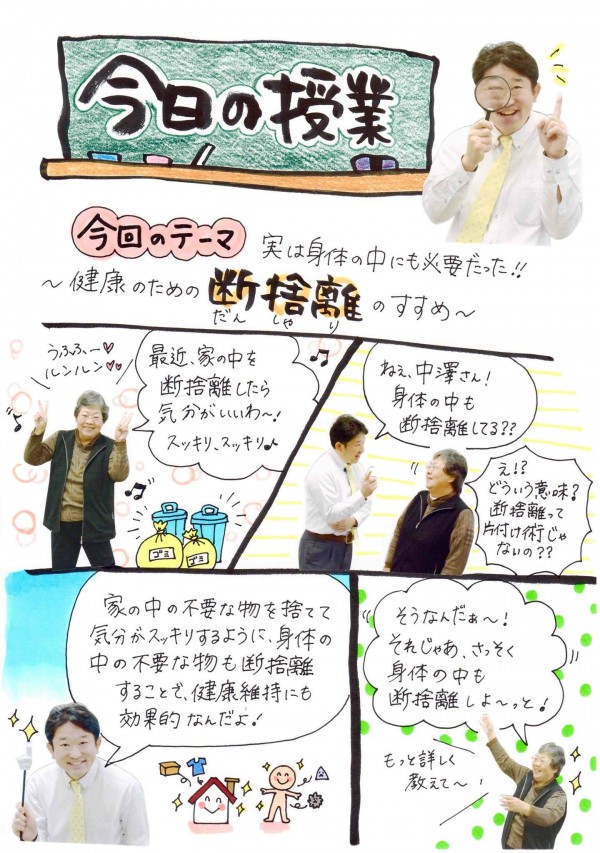 今日の授業
今回のテーマ
実は身体の中にも必要だった!!
～健康のための断捨離のすすめ～
だん しゃ り
うふふー♥
ルンルン♥♥
最近、家の中を
断捨離したら
気分がいいわ～!
スッキリ、スッキリ♪
ゴミ
ゴミ
ねぇ、中澤さん!
身体の中も
断捨離してる??
え!?
どういう意味?
断捨離って
片付け術じゃ
ないの??
家の中の不要な物を捨てて
気分がスッキリするように、身体の
中の不要な物も断捨離
することで、健康維持にも
効果的なんだよ!
そうなんだぁ～!
それじゃあ、さっそく
身体の中も
断捨離しよ～っと!
もっと詳しく
教えて～